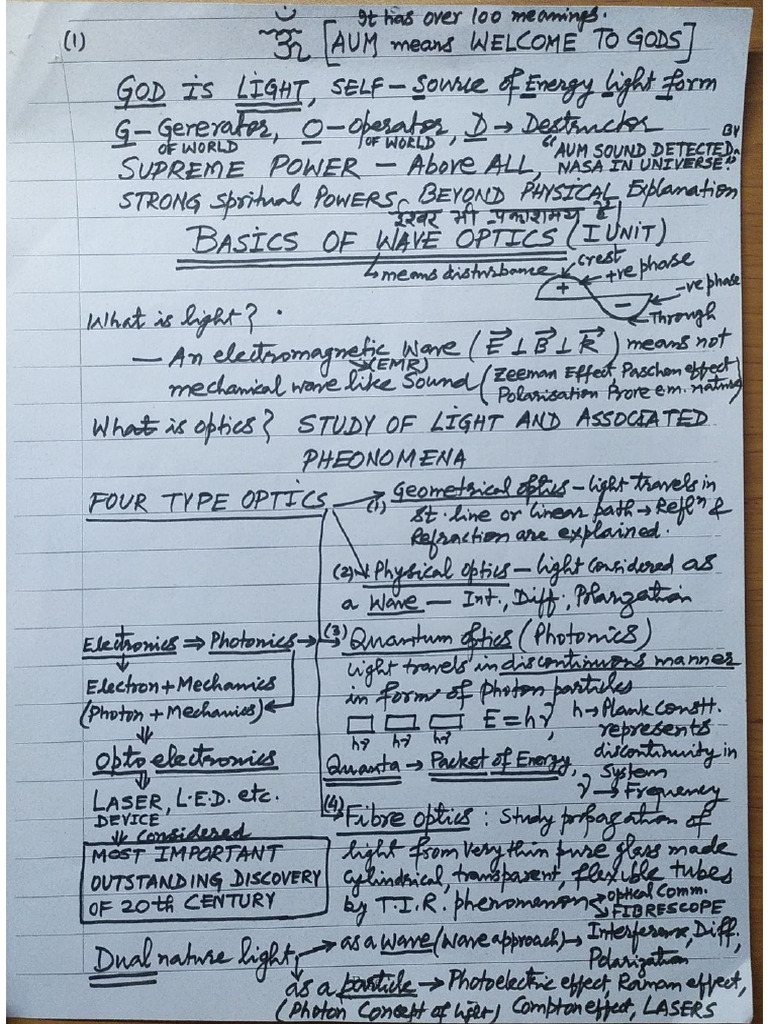 It has over 100 meanings.
(1) ॐ [AUM means WELCOME TO GODS]
GOD is LIGHT, SELF – Source of Energy Light form
G – Gererator, O – Operator, D → Destructor
OF WORLD OF WORLD
SUPREME POWER – Above ALL, "AUM SOUND DETECTED BY
NASA IN UNIVERSE."
STRONG Spritual POWERS BEYOND PHYSICAL Explanation
ईश्वर भी प्रकाशमय है।
BASICS OF WAVE OPTICS (I UNIT)
means disturbance
crest
+ve phase
+
-
-ve phase
Through
What is light?
— An electromagnetic wave (E⃗ ⊥ B⃗ ⊥ K⃗) means not
(EMR)
mechanical wave like Sound (Zeeman Effect, Paschen effect
Polarisation Prove em. nature)
What is optics? STUDY OF LIGHT AND ASSOCIATED
PHEONOMENA
FOUR TYPE OPTICS
(1) Geometrical optics – light travels in
St. line or linear path → Reflⁿ &
Refraction are explained.
(2) Physical optics – light considered as
a wave – Int., Diff., Polarization
Electronics ⇒ Photonics → (3) Quantum optics (Photonics)
Electron + Mechanics
(Photon + Mechanics)
light travels in discontinuous manner
in form of photon particles
hν hν hν
E = hν, h → Plank Constt.
represents
discontinuity in
System
ν → Frequency
Quanta → Packet of Energy,
Optoelectronics
LASER, L.E.D. etc.
DEVICE
considered
MOST IMPORTANT
OUTSTANDING DISCOVERY
OF 20th CENTURY
(4) Fibre optics : Study propagation of
light from very thin pure glass made
cylindrical, transparent, flexible tubes
by T.I.R. phenomenon → optical Comm.
→ FIBRESCOPE
Dual nature light, → as a wave (wave approach) → Interference, Diff.,
Polarization
as a particle → Photoelectric effect, Raman effect,
(Photon Concept of light) Compton effect, LASERS